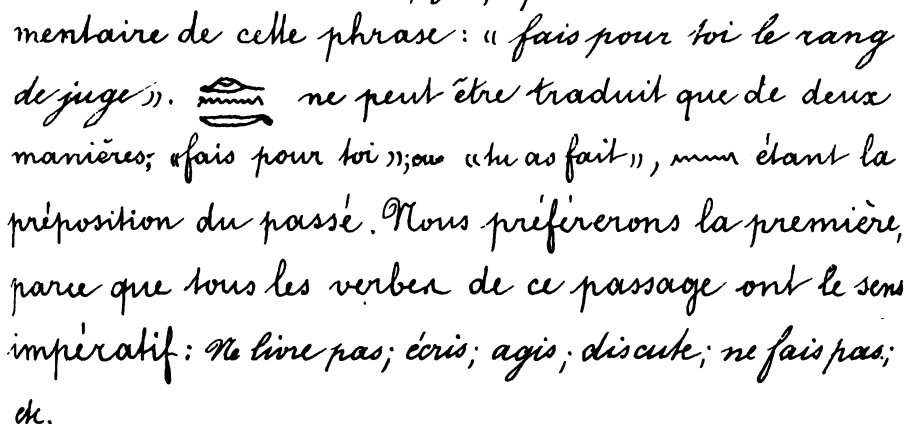 mentaire de cette phrase : « fais pour toi le rang
de juge ». ne peut être traduit que de deux
manières; «fais pour toi »; ou « tu as fait », étant la
préposition du passé. Nous préférerons la première,
parce que tous les verbes de ce passage ont le sens
impératif : Ne livre pas; écris; agis; discute; ne fais pas;
etc.